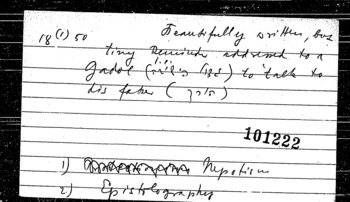 18 (1) 50 Beautifully written, but
tiny Reminder addressed to a
Gadol ( ) to talk to
his father ( )
101222
1) Nepotism
2) Epistolography